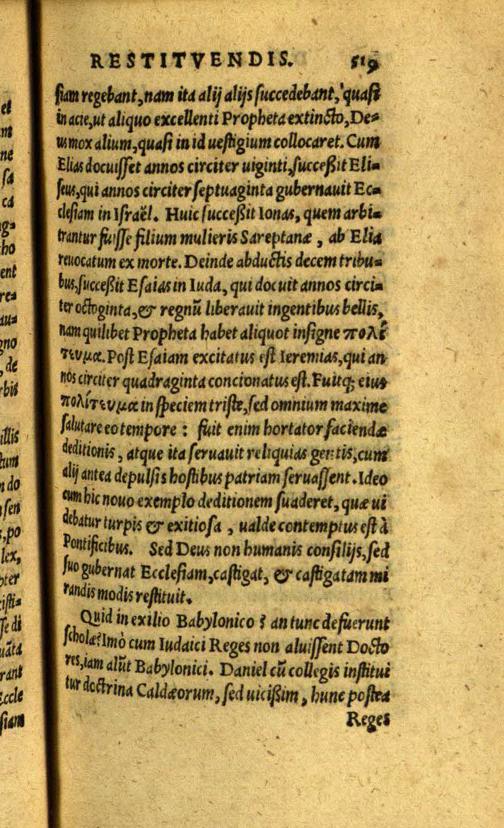 RESTITVENDIS. 519
siam regebant, nam ita alij alijs succedebant, quasi
in acie, ut aliquo excellenti Propheta extincto, De=
us mox alium, quasi in id uestigium collocaret. Cum
Elias docuisset annos circiter uiginti, successit Eli=
seus, qui annos circiter septuaginta gubernauit Ec=
clesiam in Israël. Huic successit Ionas, quem arbi=
trantur fuisse filium mulieris Sareptanæ, ab Elia
reuocatum ex morte. Deinde abductis decem tribu=
bus, successit Esaias in Iuda, qui docuit annos circi=
ter octoginta, & regnũ liberauit ingentibus bellis,
nam quilibet Propheta habet aliquot insigne πολί
τευμα. Post Esaiam excitatus est Ieremias, qui an
nos circiter quadraginta concionatus est. Fuitq; eius
πολίτευμα in speciem triste, sed omnium maxime
salutare eo tempore : fuit enim hortator faciendæ
deditionis, atque ita seruauit reliquias gentis, cum
alij antea depulsis hostibus patriam seruassent. Ideo
cum hic nouo exemplo deditionem suaderet, quæ ui
debatur turpis & exitiosa, ualde contemptus est à
Pontificibus. Sed Deus non humanis consilijs, sed
suo gubernat Ecclesiam, castigat, & castigatam mi
randis modis restituit.
Quid in exilio Babylonico ? an tunc defuerunt
scholæ? Imò cum Iudaici Reges non aluissent Docto
res, iam alũt Babylonici. Daniel cũ collegis institui
tur doctrina Caldæorum, sed uicissim, hunc postea
Reges